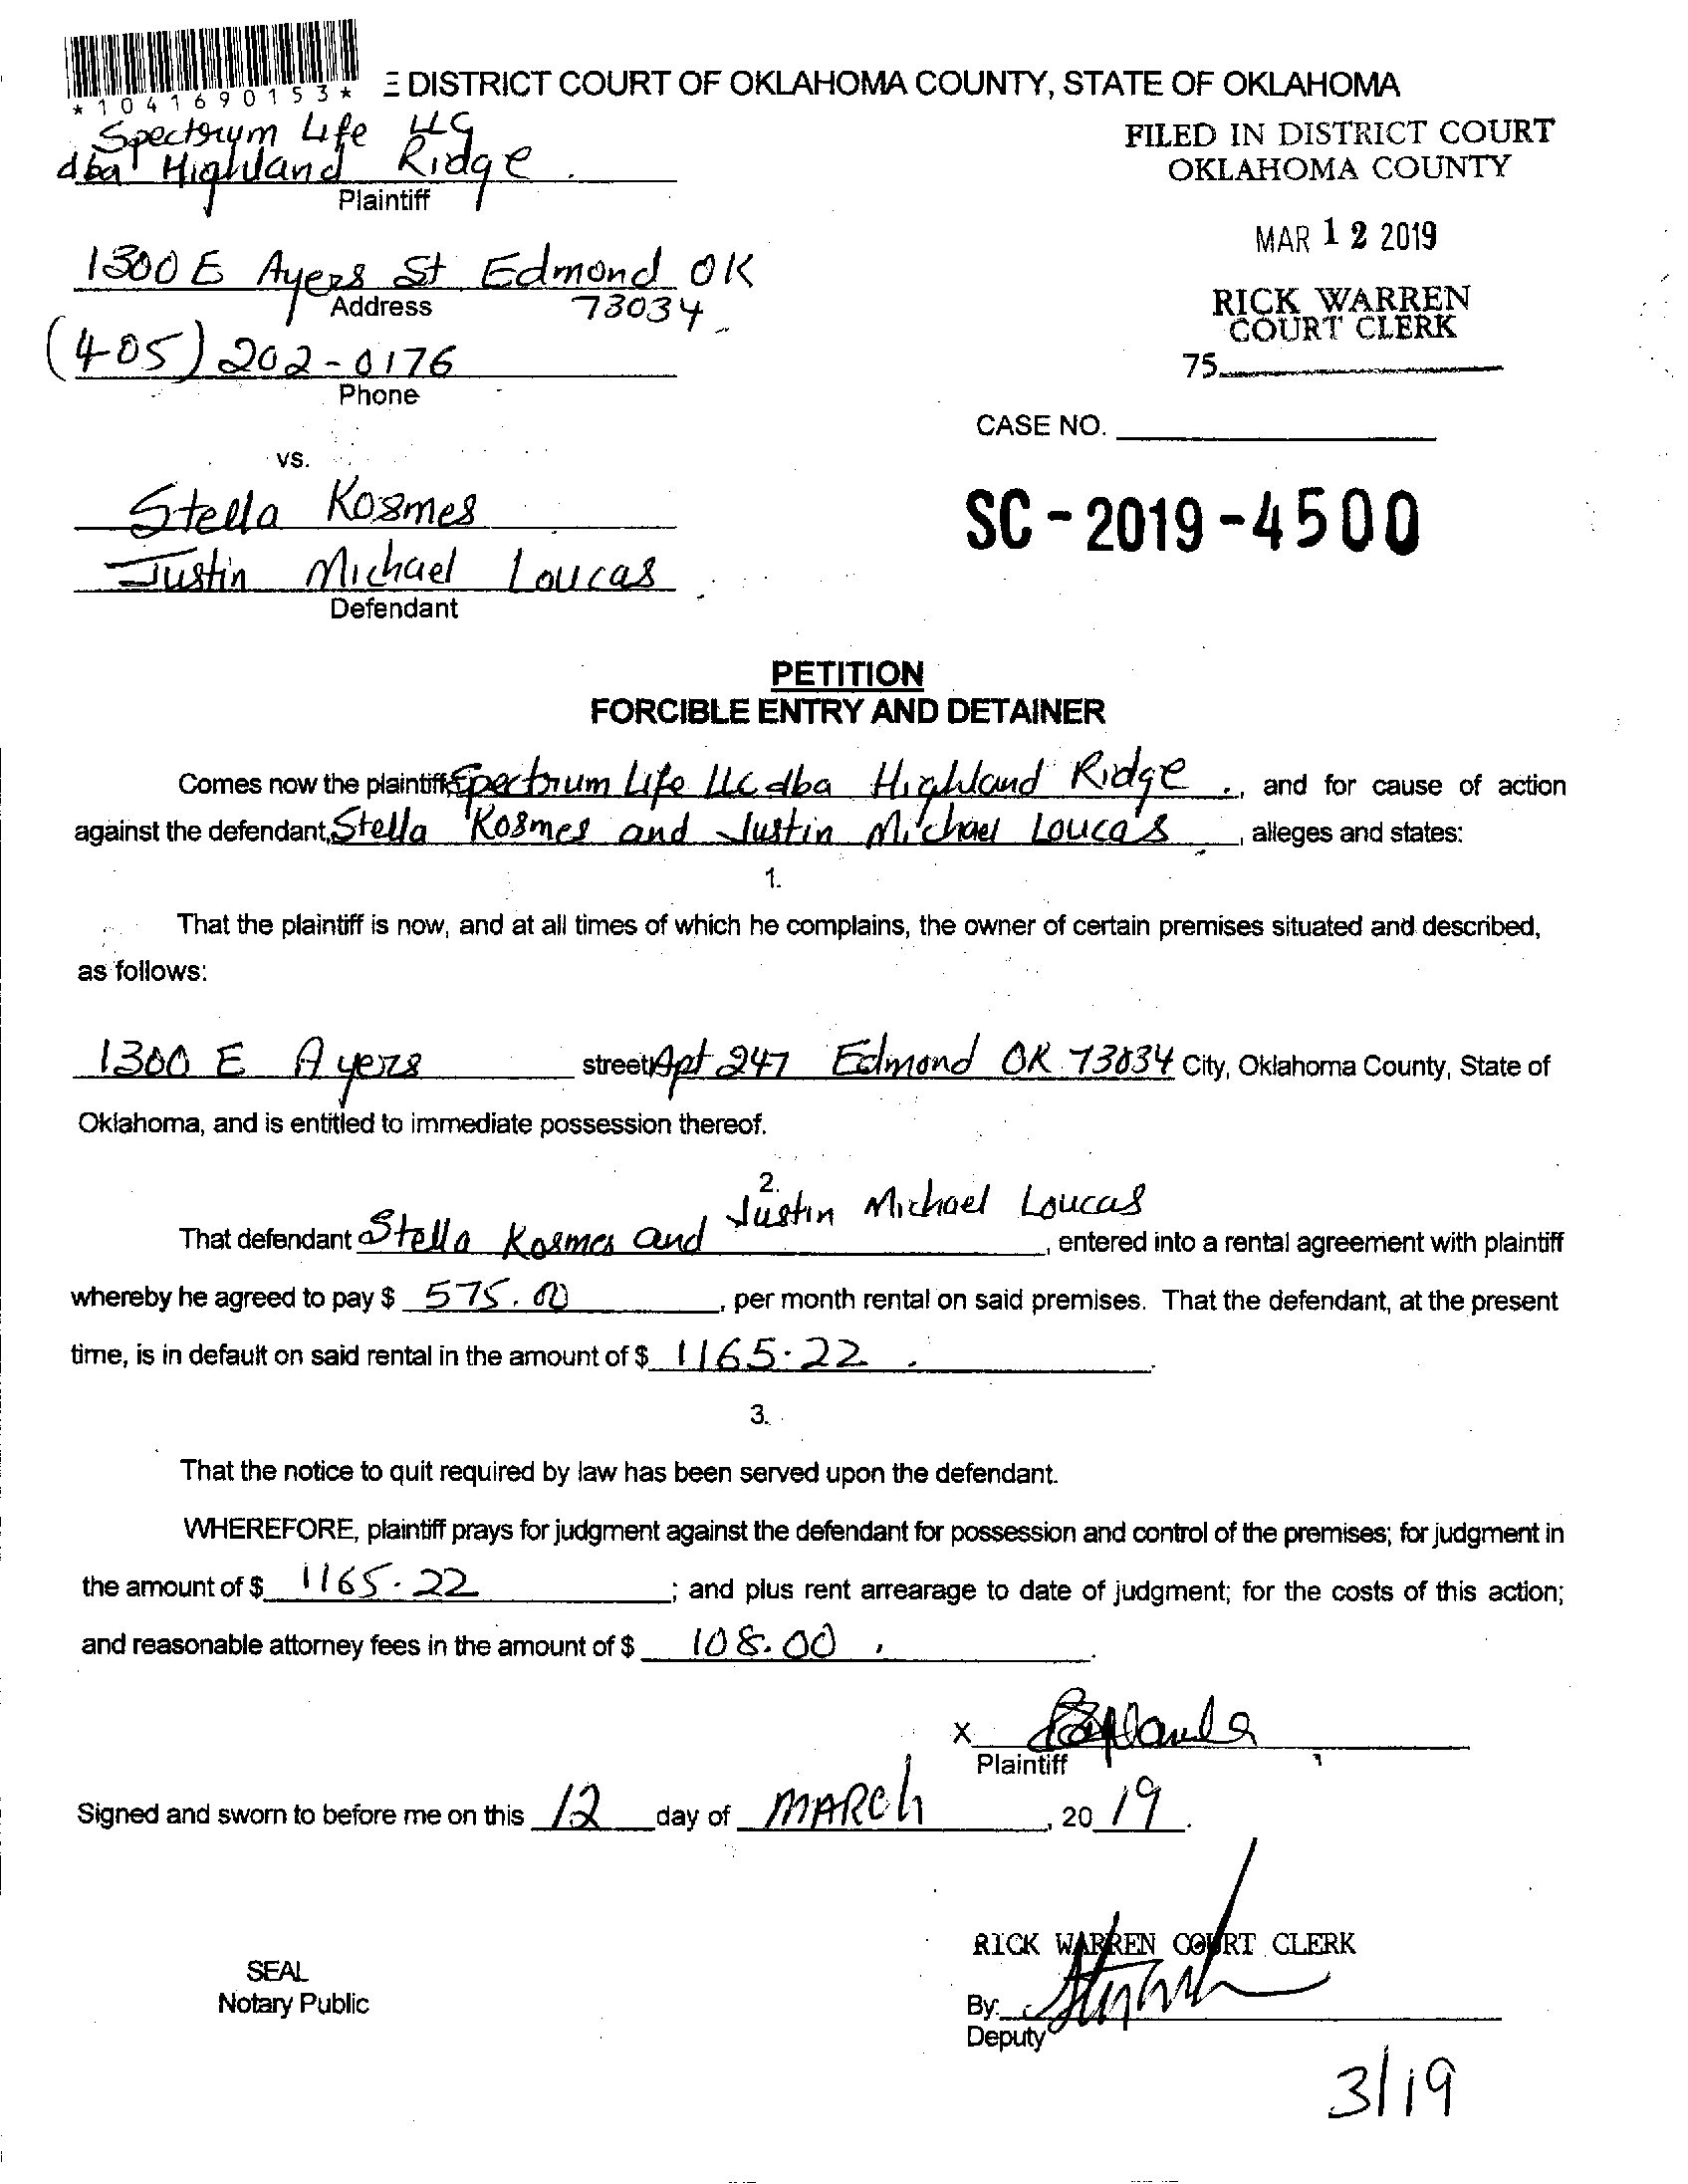 *1041690153*
DISTRICT COURT OF OKLAHOMA COUNTY, STATE OF OKLAHOMA
Spectrum Life LLC
dba Highland Ridge
Plaintiff
FILED IN DISTRICT COURT
OKLAHOMA COUNTY
MAR 12 2019
RICK WARREN
COURT CLERK
75
1300 E Ayers St Edmond OK
Address 73034
(405) 202-0176
Phone
CASE NO.
vs.
Stella Kosmes
SC-2019-4500
Justin Michael Loucas
Defendant
PETITION
FORCIBLE ENTRY AND DETAINER
Comes now the plaintiff Spectrum Life LLC dba Highland Ridge, and for cause of action
against the defendant, Stella Kosmes and Justin Michael Loucas, alleges and states:
1.
That the plaintiff is now, and at all times of which he complains, the owner of certain premises situated and described,
as follows:
1300 E Ayers street, Apt 247 Edmond OK 73034 City, Oklahoma County, State of
Oklahoma, and is entitled to immediate possession thereof.
2.
That defendant Stella Kosmes and Justin Michael Loucas, entered into a rental agreement with plaintiff
whereby he agreed to pay $ 575.00, per month rental on said premises. That the defendant, at the present
time, is in default on said rental in the amount of $ 1165.22.
3.
That the notice to quit required by law has been served upon the defendant.
WHEREFORE, plaintiff prays for judgment against the defendant for possession and control of the premises; for judgment in
the amount of $ 1165.22; and plus rent arrearage to date of judgment; for the costs of this action;
and reasonable attorney fees in the amount of $ 108.00.
X
Plaintiff
Signed and sworn to before me on this 12 day of MARCh, 2019.
RICK WARREN COURT CLERK
SEAL
Notary Public
By:
Deputy
3/19